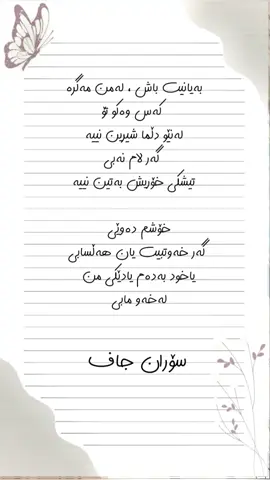 بەیانیت باش ، لەمن مەگرە
کەس وەکو تۆ
لەنێو دڵما شیرین نییە
گەر لام نەبی
تیشکی خۆریش بەتین نییە
خۆشم دەوێی
گەر خەوتبیت یان هەڵسابی
یاخود بەدەم یادێکی من
لەخەو مابی
سۆران جاف